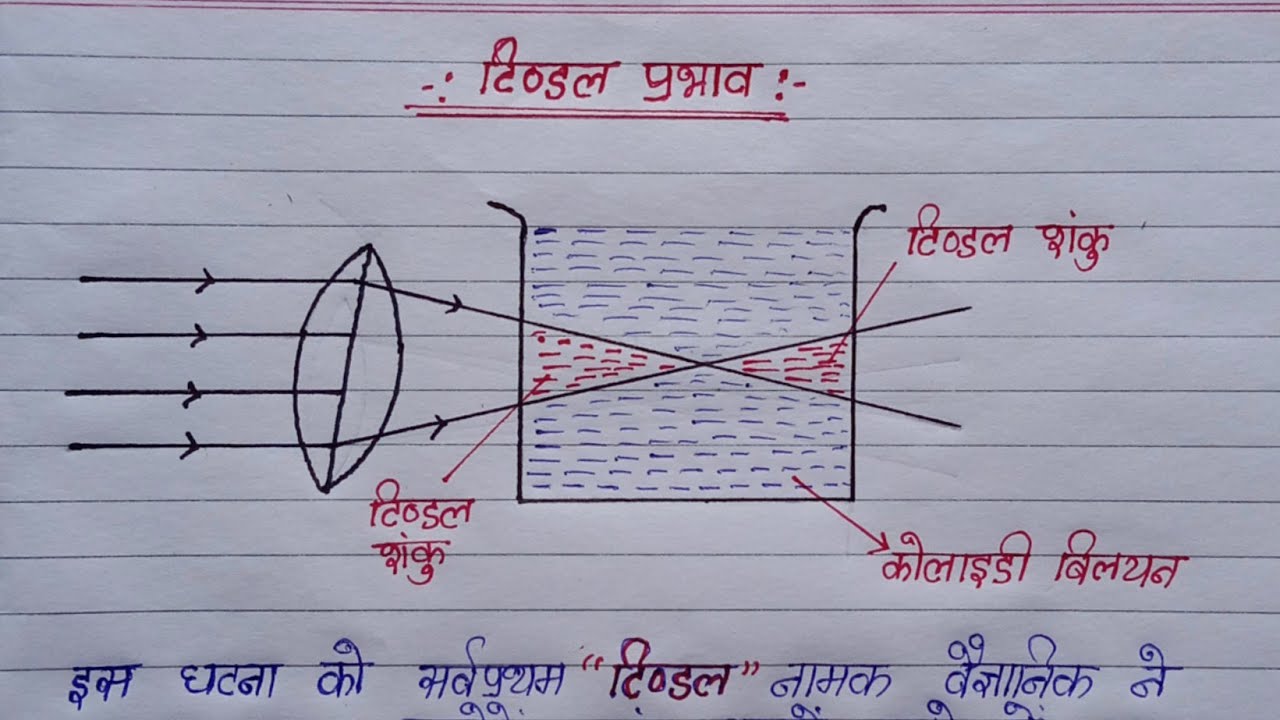 -: टिण्डल प्रभाव :-
टिण्डल शंकु
टिण्डल
शंकु
कोलाइडी बिलयन
इस घटना को सर्वप्रथम "टिण्डल" नामक वैज्ञानिक ने